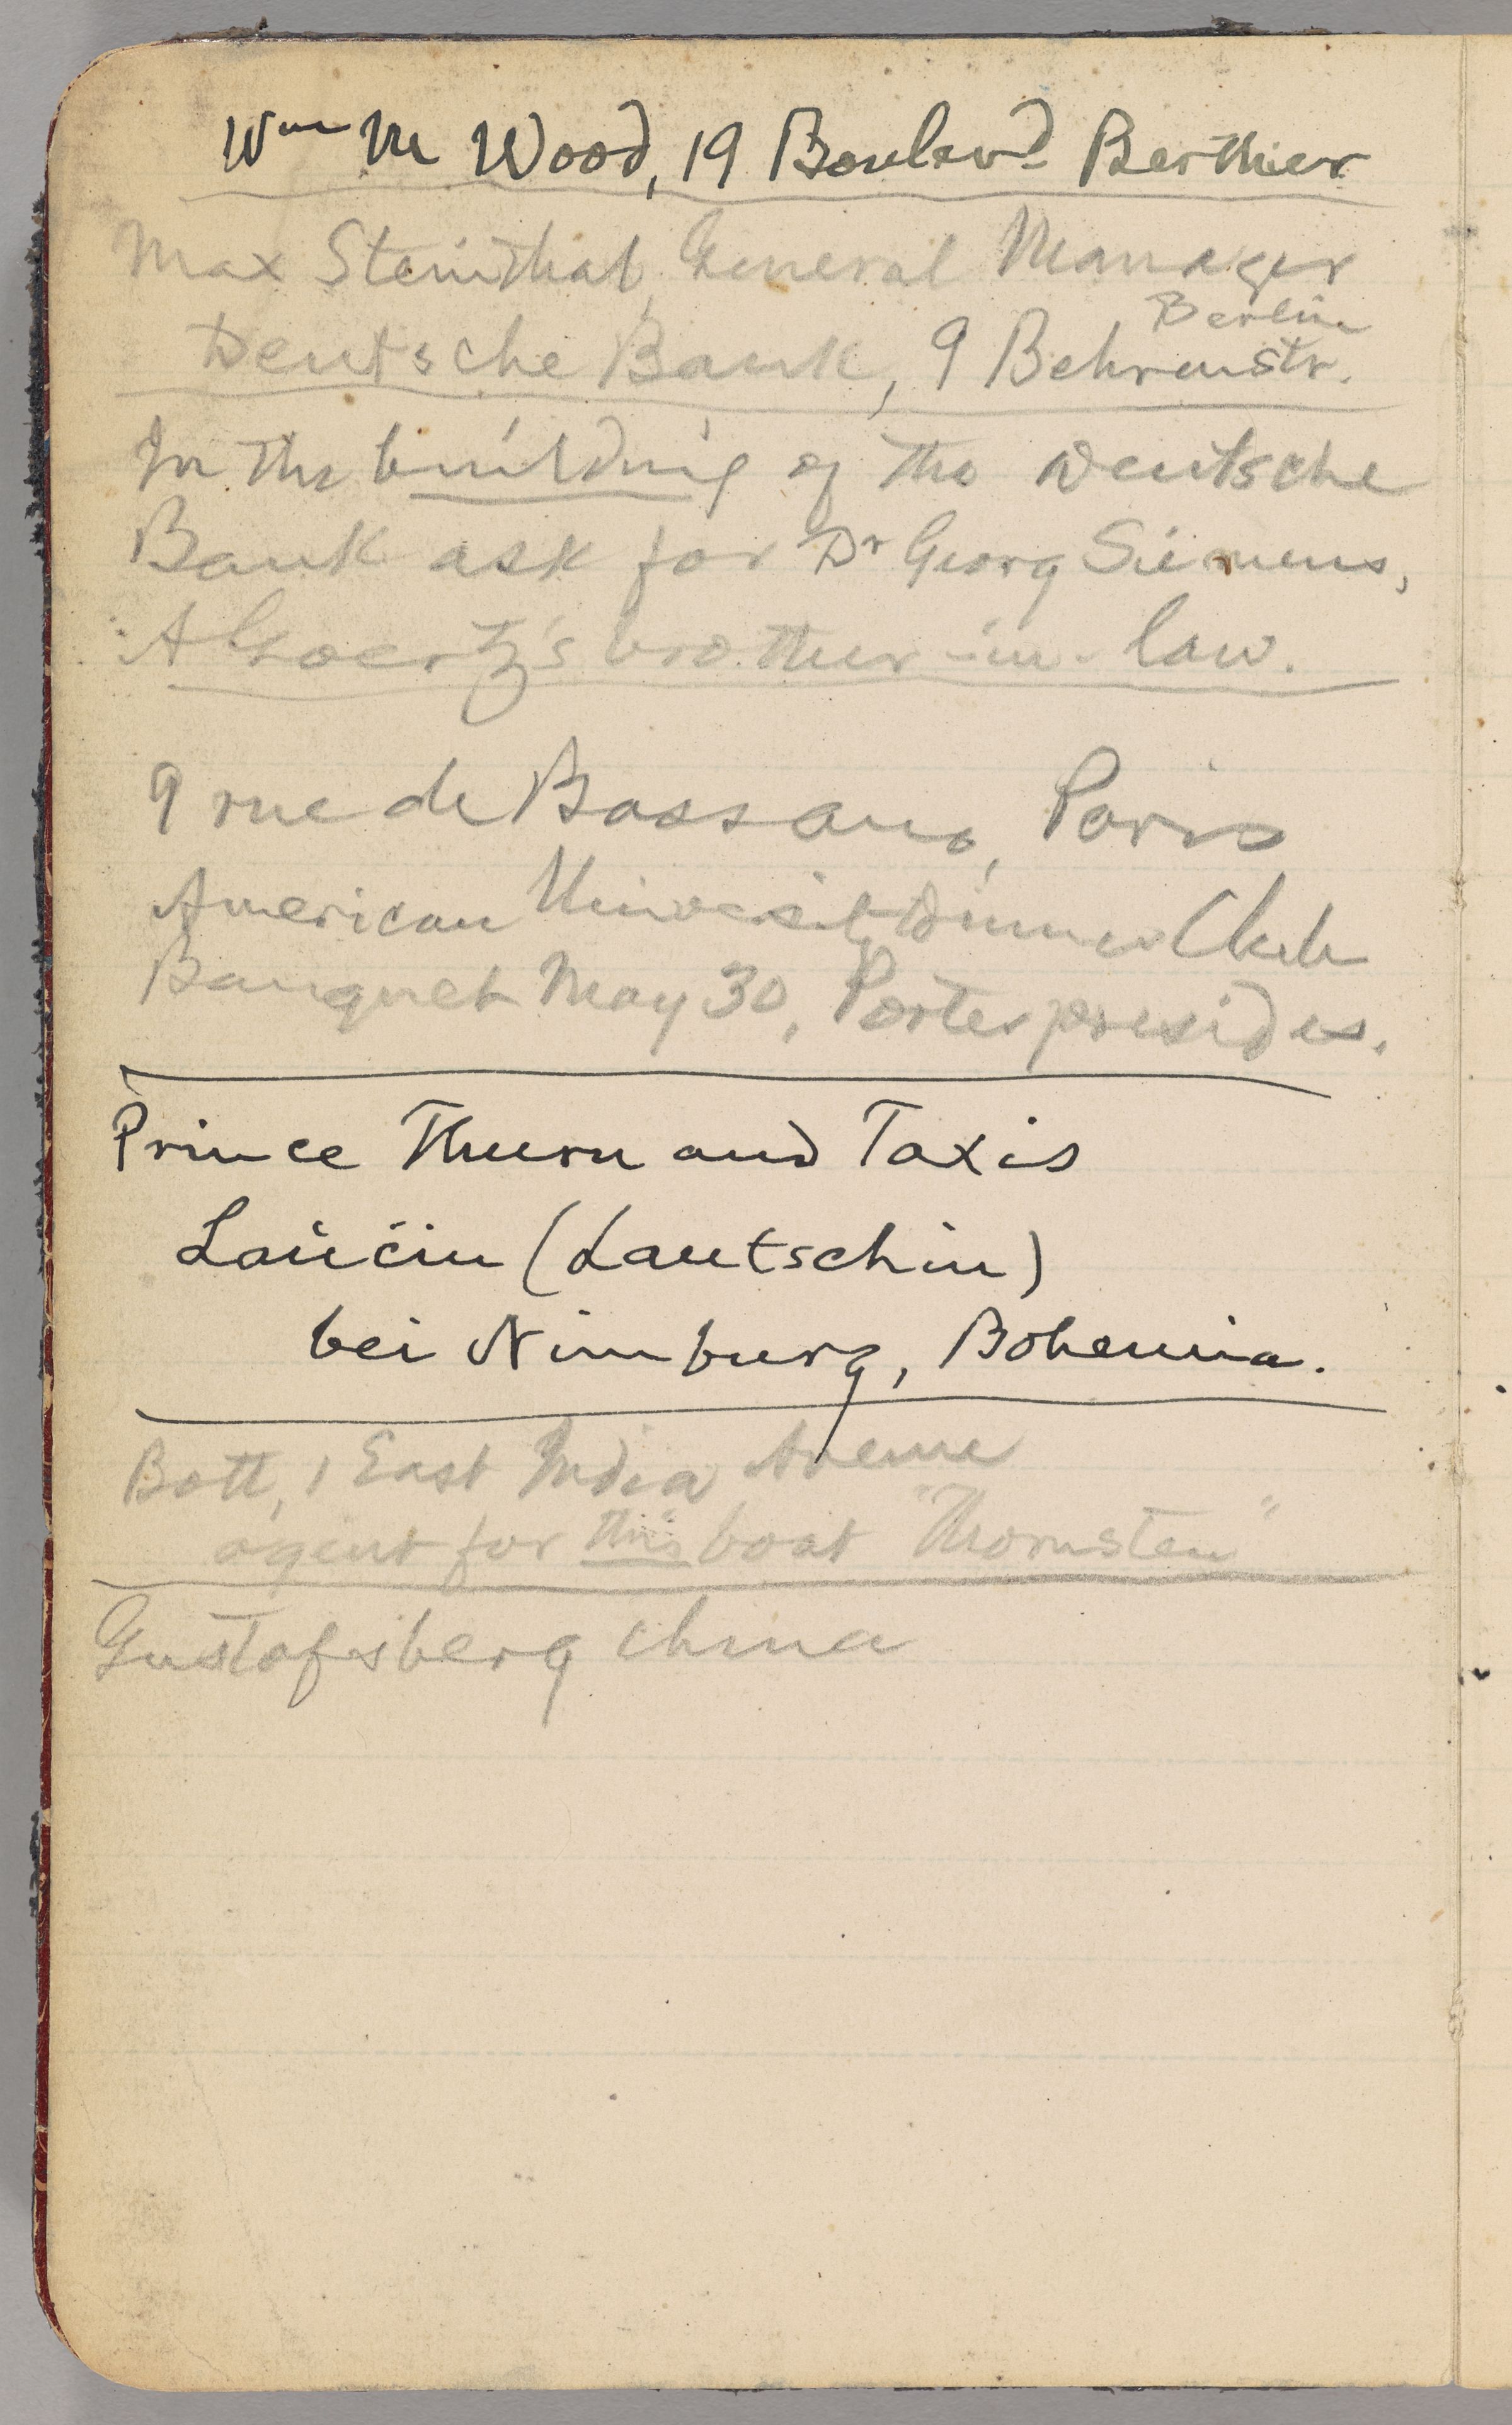 Wm M Wood, 19 Boulevd Berthier
Max Steinthal, General Manager
Berlin
Deutsche Bank, 9 Behrenstr.
In the building of the Deutsche
Bank ask for Dr Georg Siemens,
A Goertz's brother-in-law.
9 rue de Bassano, Paris
American University Dinner Club
Banquet May 30, Porter presides.
Prince Thurn and Taxis
Loučin (Lautschin)
bei Nimburg, Bohemia.
Bott, 1 East India Avenue
agent for this boat "Thornsten"
Gustafsberg china